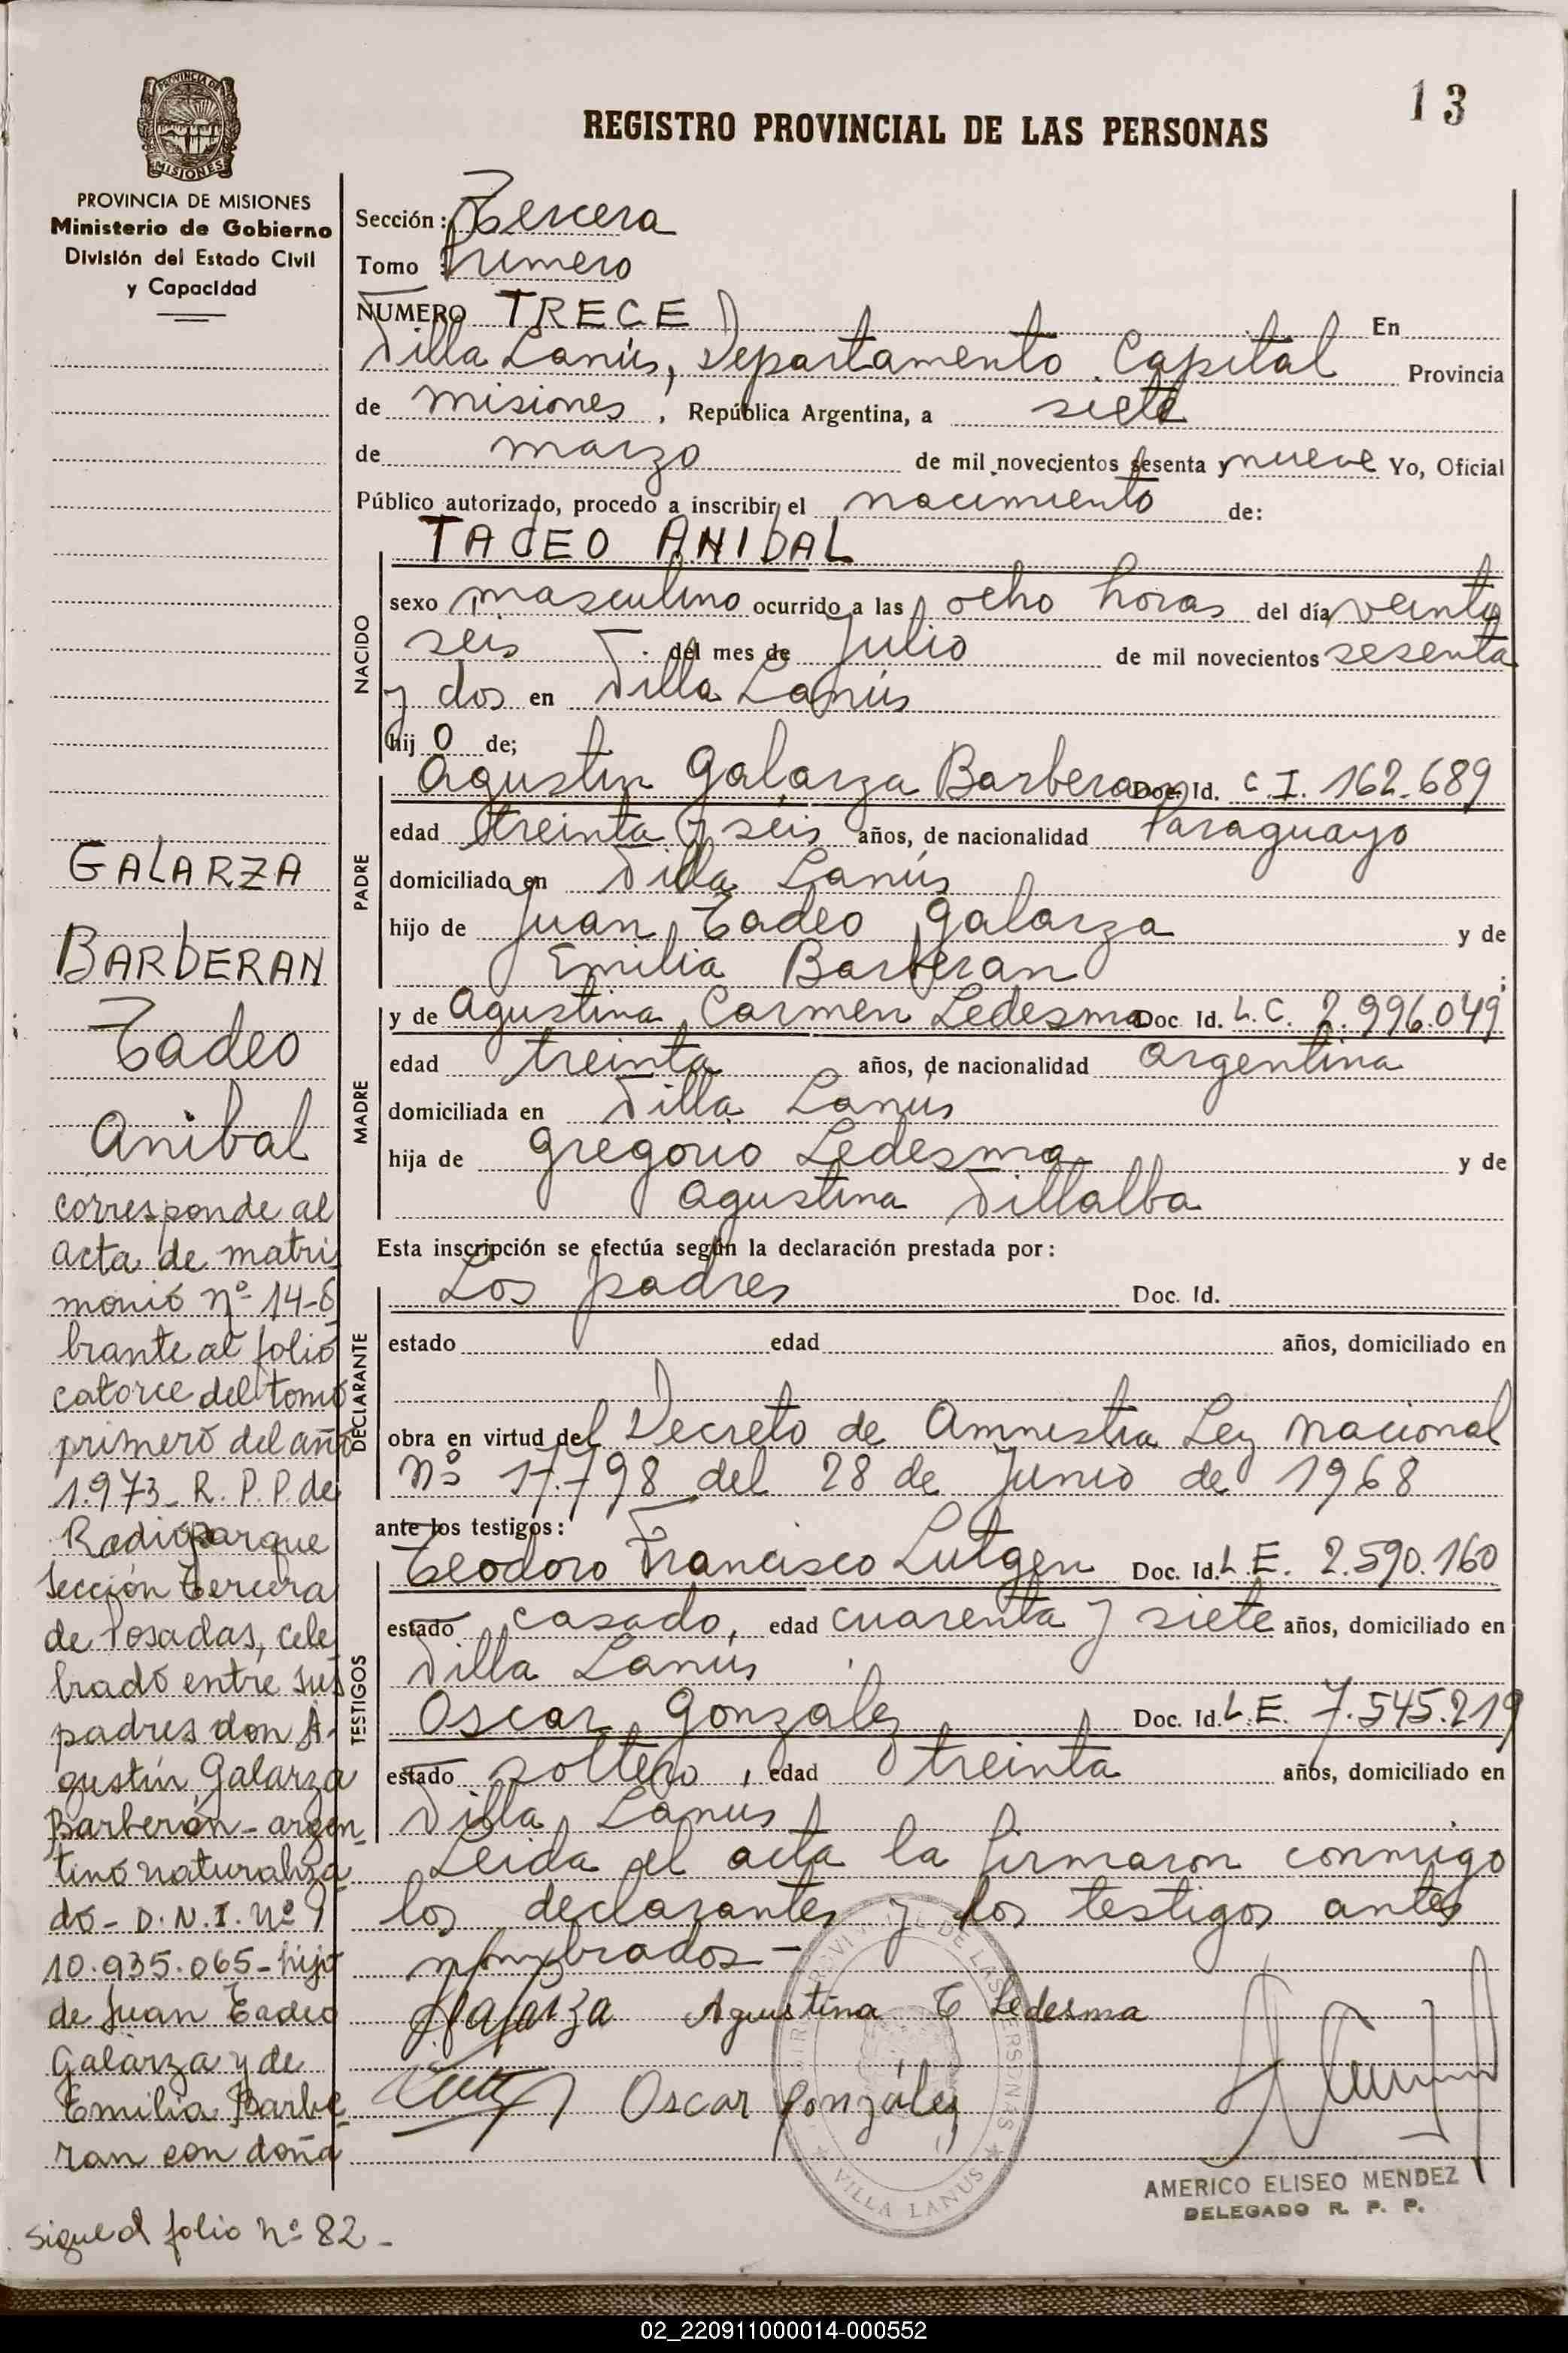 13
REGISTRO PROVINCIAL DE LAS PERSONAS
PROVINCIA DE
MISIONES
PROVINCIA DE MISIONES
Ministerio de Gobierno
División del Estado Civil
y Capacidad
Sección: Tercera
Tomo : Primero
NUMERO TRECE En
Villa Lanús, Departamento Capital Provincia
de Misiones, República Argentina, a siete
de marzo de mil novecientos sesenta y nueve Yo, Oficial
Público autorizado, procedo a inscribir el nacimiento de:
TADEO ANIBAL
NACIDO
sexo masculino ocurrido a las ocho horas del día veinti
seis del mes de Julio de mil novecientos sesenta
y dos en Villa Lanús
hij o de;
PADRE
Agustin Galarza Barberan Doc. Id. C.I. 162.689
edad treinta y seis años, de nacionalidad Paraguayo
domiciliado en Villa Lanús
hijo de Juan Tadeo Galarza y de
Emilia Barberan ;
MADRE
y de Agustina Carmen Ledesma Doc Id. L.C. 2.996.049
edad treinta años, de nacionalidad argentina
domiciliada en Villa Lanus
hija de Gregorio Ledesma y de
Agustina Villalba
Esta inscripción se efectúa según la declaración prestada por:
DECLARANTE
Los padres Doc. Id.
estado edad años, domiciliado en
obra en virtud del Decreto de Amnistia Ley Nacional
Nº 17.798 del 28 de Junio de 1968
ante los testigos:
TESTIGOS
Teodoro Francisco Lutgen Doc. Id. L.E. 2.590.160
estado casado, edad cuarenta y siete años, domiciliado en
Villa Lanus
Oscar Gonzalez Doc. Id. L.E. 7.545.219
estado soltero, edad treinta años, domiciliado en
Villa Lanus
Leida el acta la firmaron conmigo
los declarantes y los testigos antes
nombrados -
Galarza Agustina C Ledesma
Oscar González
VILLA LANUS
AMERICO ELISEO MENDEZ
DELEGADO R. P. P.
GALARZA
BARBERAN
Tadeo
Anibal
corresponde al
acta de matri
monio nº 14-o
brante al folio
catorce del tomo
primero del año
1.973_ R. P. P. de
Radioparque
Sección Tercera
de Posadas, cele
brado entre sus
padres don A-
gustín Galarza
Barberán - argen
tino naturaliza
do - D.N.I. Nº
10.935.065 - hijo
de Juan Tadeo
Galarza y de
Emilia Barbe
ran con doña
Sigue al folio nº 82 -
02_220911000014-000552